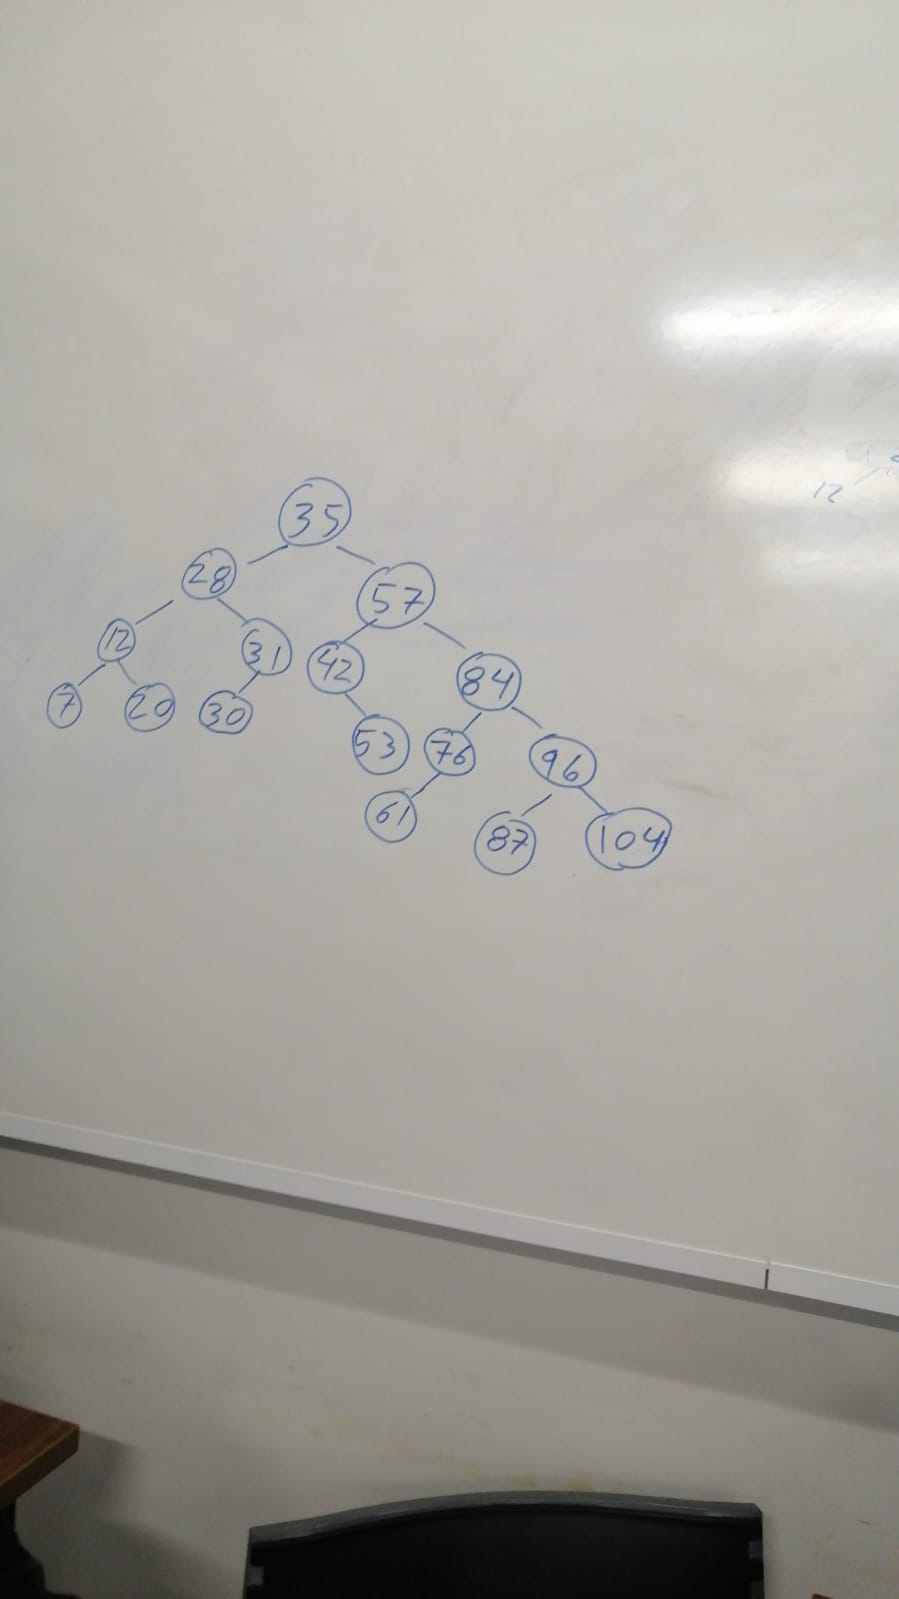 35
28 57
12 31 42 84
7 20 30 53 76 96
61 87 104
12